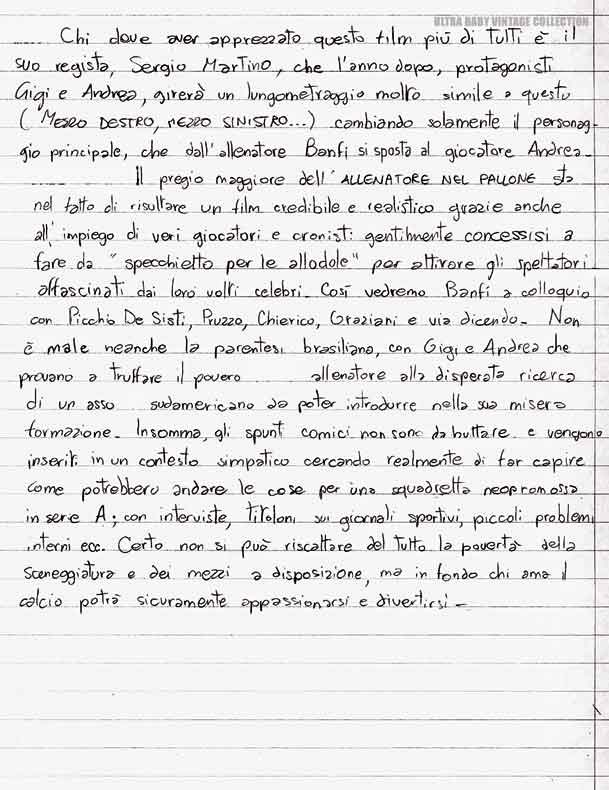 ULTRA BABY VINTAGE COLLECTION
Chi deve aver apprezzato questo film più di tutti è il
suo regista, Sergio Martino, che l'anno dopo, protagonisti
Gigi e Andrea, girerà un lungometraggio molto simile a questo
("MEZZO DESTRO, MEZZO SINISTRO...) cambiando solamente il personag-
gio principale, che dall'allenatore Banfi si sposta al giocatore Andrea.
Il pregio maggiore dell'ALLENATORE NEL PALLONE sta
nel fatto di risultare un film credibile e realistico grazie anche
all'impiego di veri giocatori e cronisti gentilmente concessisi a
fare da "specchietto per le allodole" per attirare gli spettatori
affascinati dai loro volti celebri. Così vedremo Banfi a colloquio
con Picchio De Sisti, Pruzzo, Chierico, Graziani e via dicendo. Non
è male neanche la parentesi brasiliana, con Gigi e Andrea che
provano a truffare il povero allenatore alla disperata ricerca
di un asso sudamericano da poter introdurre nella sua misera
formazione. Insomma, gli spunti comici non sono da buttare e vengono
inseriti in un contesto simpatico cercando realmente di far capire
come potrebbero andare le cose per una squadretta neopromossa
in serie A; con interviste, titoloni sui giornali sportivi, piccoli problemi
interni ecc. Certo non si può riscattare del tutto la povertà della
sceneggiatura e dei mezzi a disposizione, ma in fondo chi ama il
calcio potrà sicuramente appassionarsi e divertirsi.